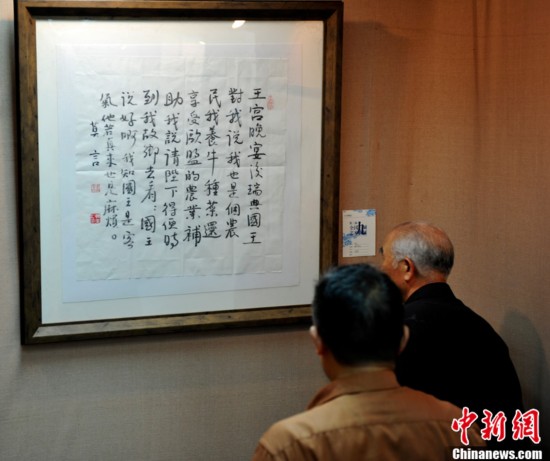 王宫晚宴後瑞典國王
對我说我也是個農
民我養牛種菜還
享受欧盟的農業補
助我说請陛下得便時
到我故鄉去看：國王
说好啊我知國王是客
氣他若真來也是麻煩。
莫言
中新網
Chinanews.com